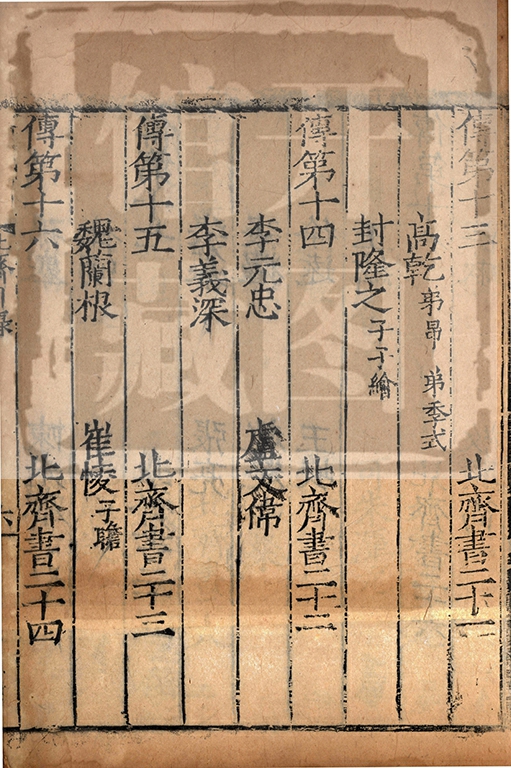 傳第十三 北齊書二十一
高乾 弟昂 弟季式
封隆之 子子繪
傳第十四 北齊書二十二
李元忠 盧文偉
李義深
傳第十五 北齊書二十三
魏蘭根 崔㥄 子瞻
傳第十六 北齊書二十四